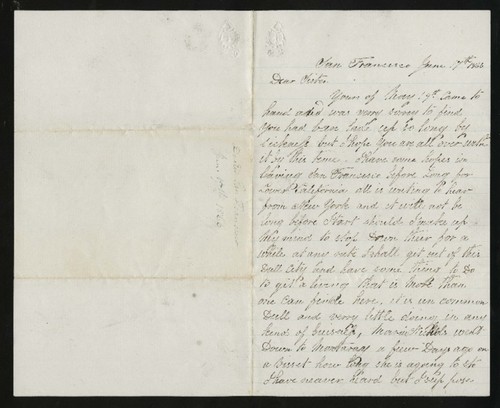 San Francisco June 17th
Dear Sister
Yours of May 9th Came to
hand and was very sorry to find
you had been laid up so long by
Sickness but I hope you are all over with
it by this time. I have some hopes in
leaving San Francisco before long for
Lower California all is wating to hear
from New York and it will not be
long before I start should I make up
My mind to stop Down their for a
while at any rate I shall get out of this
Dull City and have some thing to Do
to get a living that is more than
one can per here, it is un common
Dull and very little doing in any
kind of buisness, went
Down to a few Days ago on
a how long she is agoing to
I have never heard but I sup pose